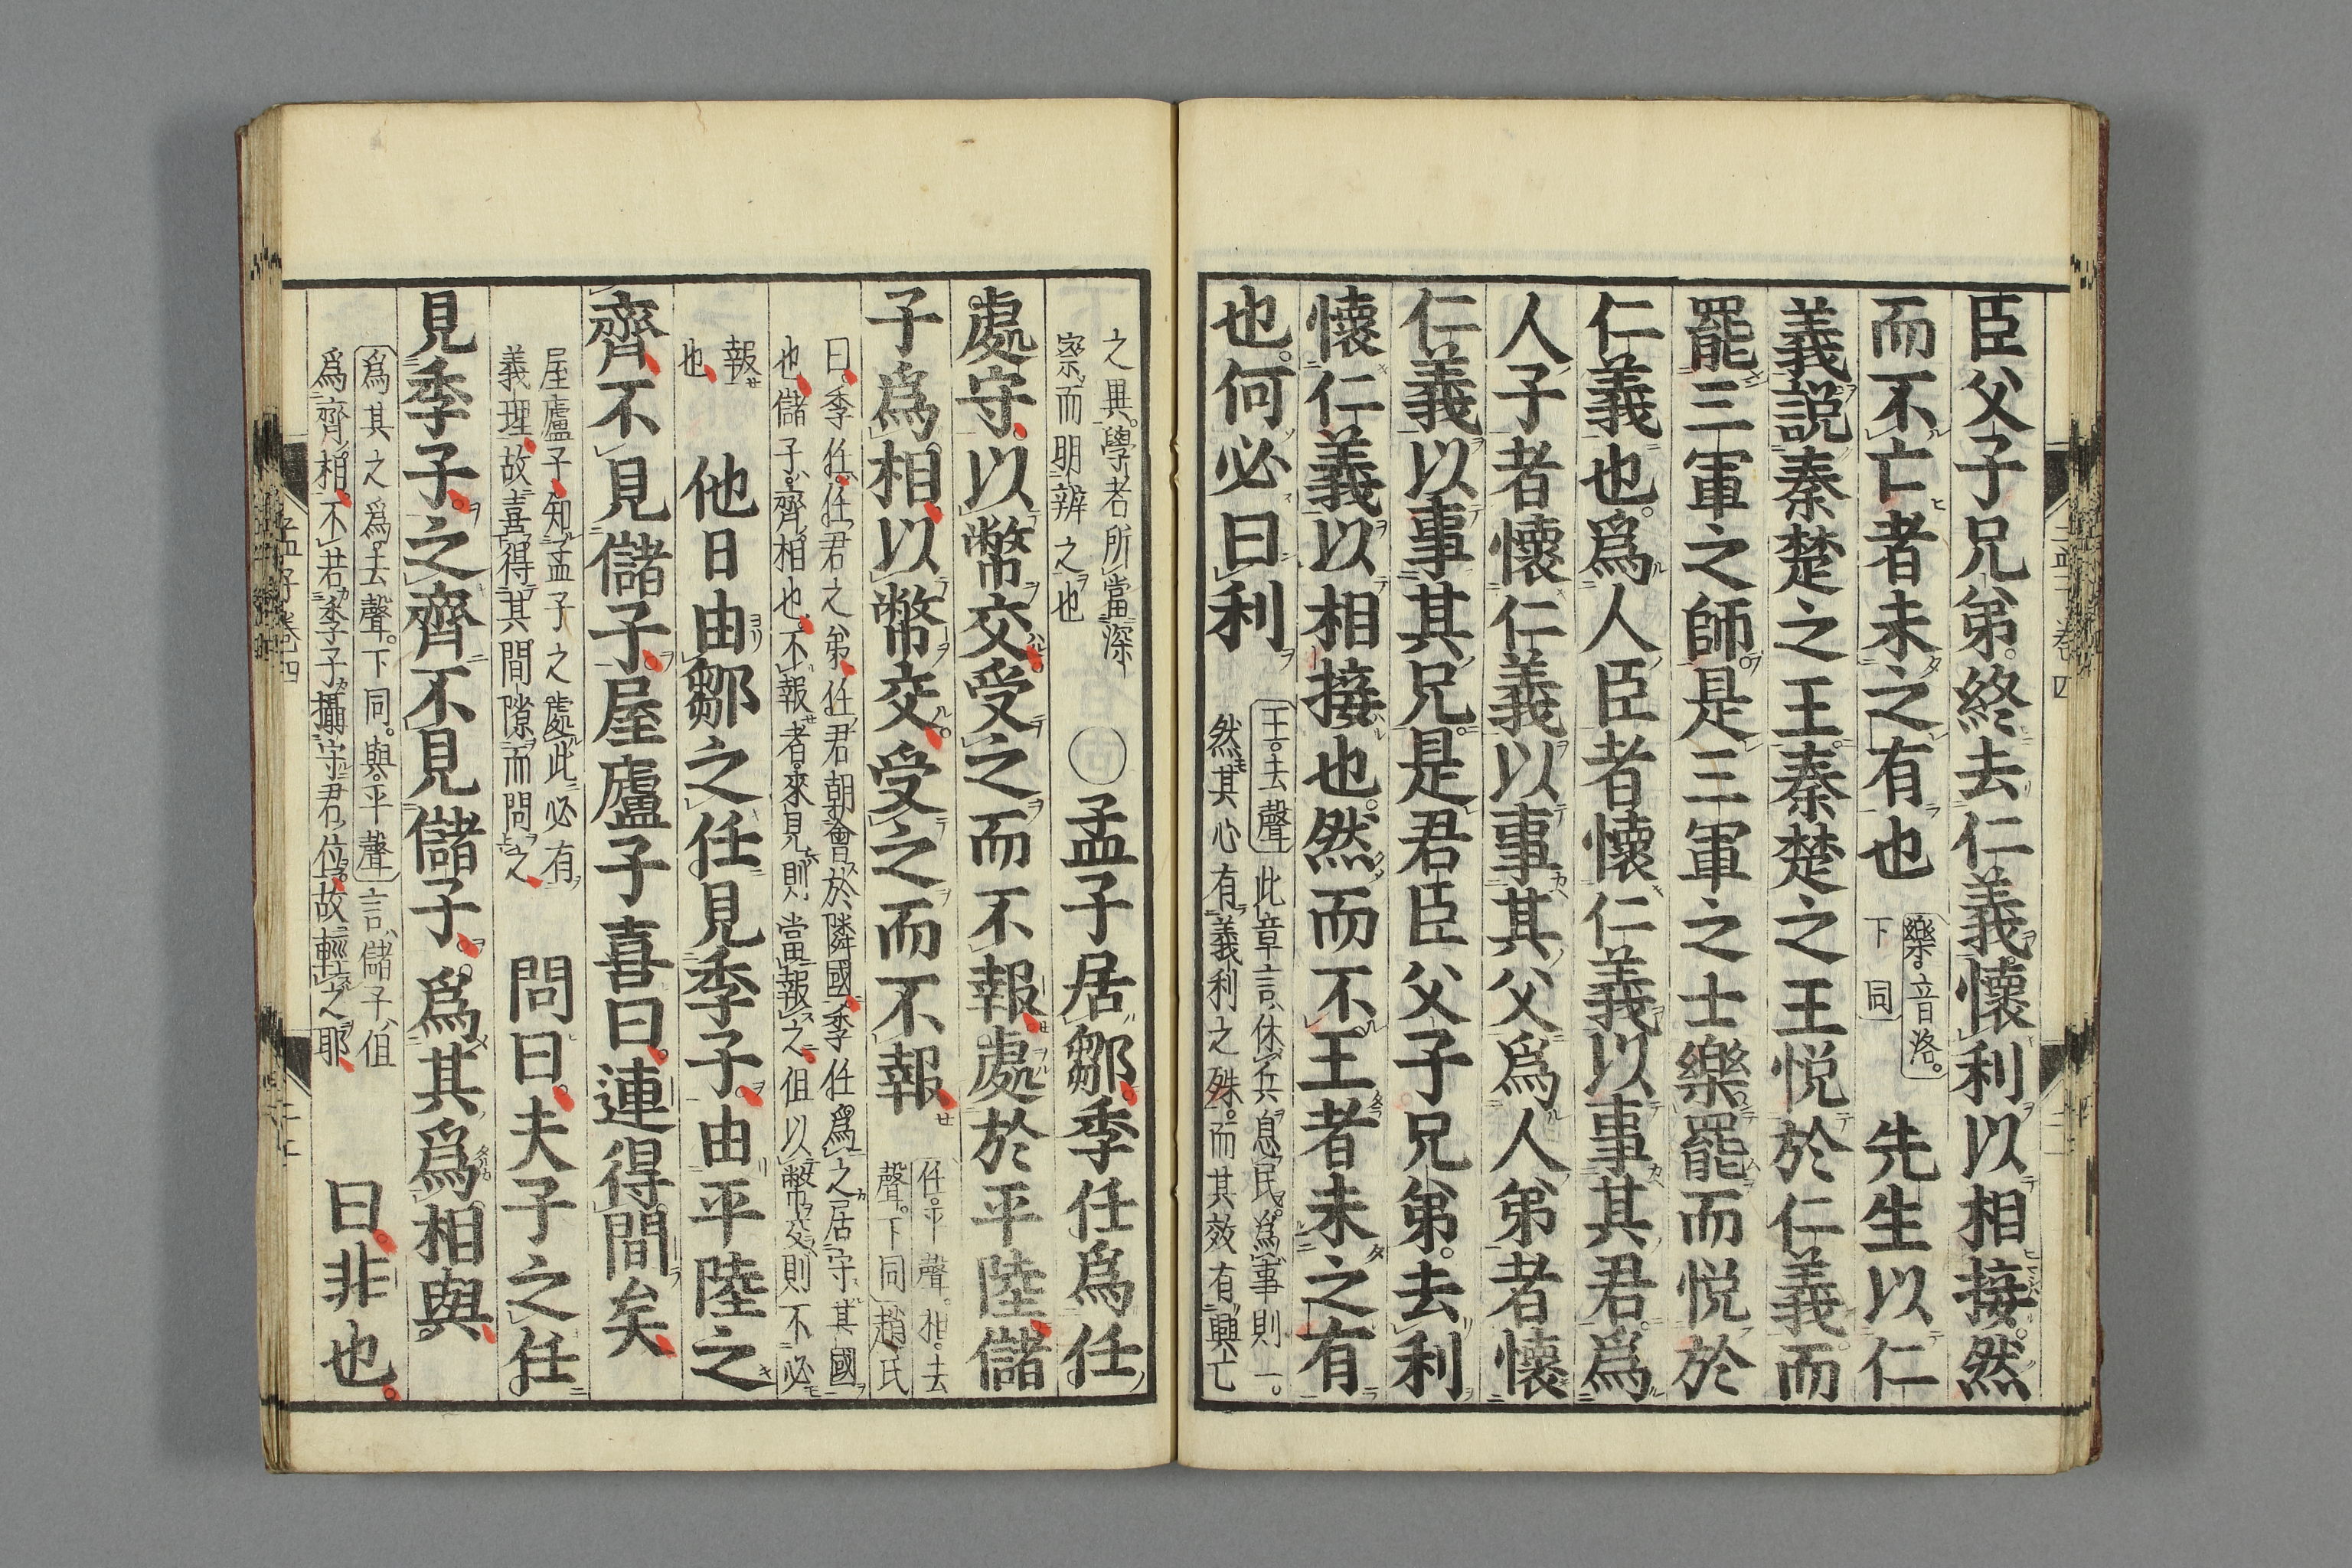 臣父子兄弟終去仁義懷利以相接然
而不亡者未之有也 樂音洛 下同 先生以仁
義說秦楚之王秦楚之王悅於仁義而
罷三軍之師是三軍之士樂罷而悅於
仁義也爲人臣者懷仁義以事其君爲
人子者懷仁義以事其父爲人弟者懷
仁義以事其兄是君臣父子兄弟去利
懷仁義以相接也然而不王者未之有
也何必曰利
王去聲此章言休兵息民爲事則一
然其心有義利之殊而其效有興亡
之異學者所當深
察而明辨之也
○孟子居鄒季任爲任
處守以幣交受之而不報處於平陸儲
子爲相以幣交受之而不報
任平聲相去
聲下同趙氏
曰季任任君之弟任君朝會於隣國季任爲之居守其國
也儲子齊相也不報者來見則當報之但以幣交則不必
報
也
他日由鄒之任見季子由平陸之
齊不見儲子屋廬子喜曰連得間矣
屋廬子知孟子之處此必有
義理故喜得其間隙而問之
問曰夫子之任
見季子之齊不見儲子爲其爲相與
爲其之爲去聲下同與平聲言儲子但
爲齊相不若季子攝守君位故輕之耶
曰非也
孟子卷四